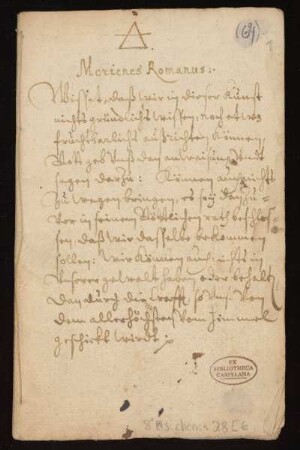 (64)
Morienes Romanus:
Wisset, daß wir in dieser Kunst
nichts gründlichs wissen, noch etwas
fruchtbarlichs außrichten können,
Gott geb unß den anweisung und
segen darzu: Können auch nichts
zu wegen bringen, es sey dan zu-
vor in seinem Göttlichen rath beschlos-
sen, daß wir dasselbe bekommen
sollen: Wir können auch nichts in
Unserer gewalt haben oder behalten
Dan durch die Krafft so Uns von
dem allerhöchsten vom Himmel
geschickt wirdt:
EX
BIBLIOTHECA
CASSELLANA
8° Ms. chem. 28 [6